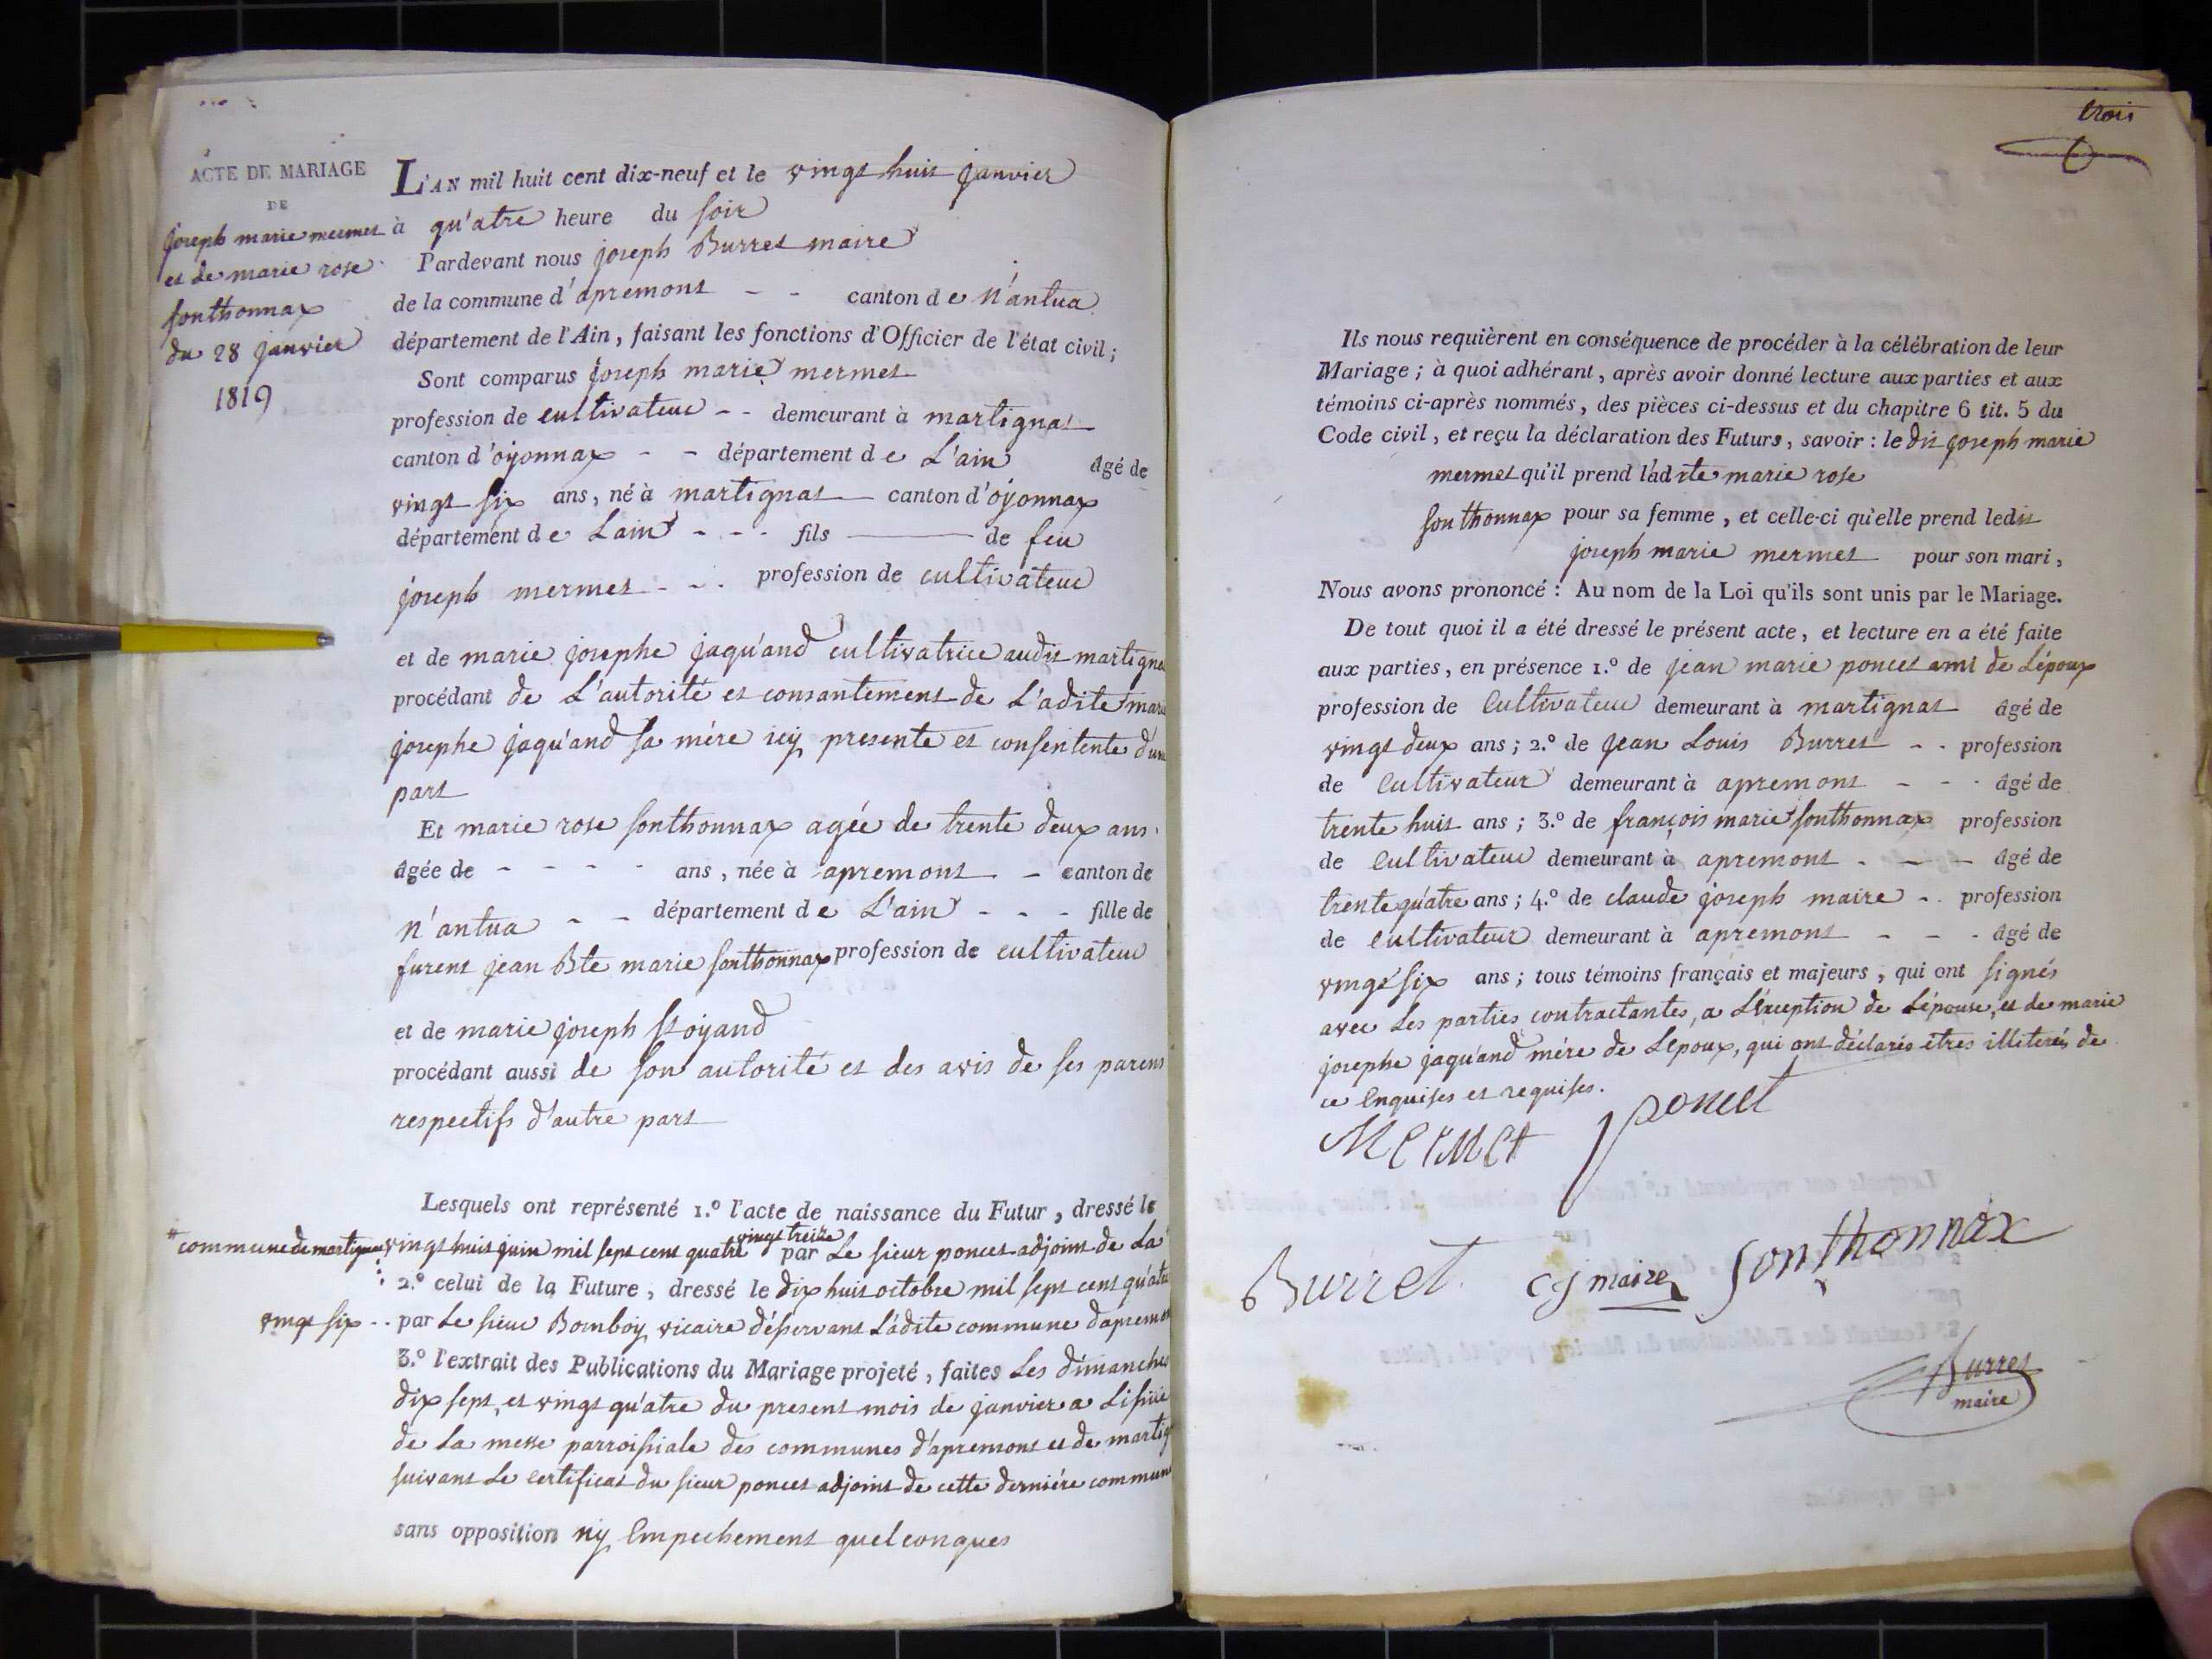 ACTE DE MARIAGE
DE
joseph marie mermet
et de marie rose
sonthonnax
du 28 janvier
1819
L'AN mil huit cent dix-neuf et le vingt huit janvier
à qu'atre heure du soir
Pardevant nous joseph Burret maire
de la commune d'apremont - - canton de n'antua
département de l'Ain, faisant les fonctions d'Officier de l'état civil;
Sont comparus joseph marie mermet
profession de cultivateur - - demeurant à martignat
canton d'oyonnax - - département de L'ain âgé de
vingt six ans, né à martignat canton d'oyonnax
département de Lain - - - fils de feu
joseph mermet - - . profession de cultivateur
et de marie josephe jaqu'and cultivatrice audit martigna
procédant de L'autorité et consantement de L'adite marie
josephe jaqu'and sa mére icy presente et consentente d'une
part
Et marie rose sonthonnax agée de trente deux ans
âgée de - - - - ans, née à apremont - canton de
n'antua - - département de L'ain - - - fille de
furent jean Bte marie sonthonnax profession de cultivateur
et de marie joseph Stoyand
procédant aussi de son autorité et des avis de ses parens
respectifs d'autre part
Lesquels ont représenté 1.º l'acte de naissance du Futur, dressé le
vingt treize
commune de martignat vingt huit juin mil sept cent quatre par Le sieur poncet adjoint de La
2.º celui de la Future, dressé le dix huit octobre mil sept cent qu'atre
vingt six - - par Le sieur Bomboy vicaire déservant L'adite commune d'apremont
3.º l'extrait des Publications du Mariage projeté, faites Les dimanches
dix sept, et vingt qu'atre du present mois de janvier a Lissüe
de La messe parroissiale des communes d'apremont et de martig
suivant Le certificat du sieur poncet adjoint de cette derniére commune
sans opposition ny Empechement quelconques
trois
Ils nous requièrent en conséquence de procéder à la célébration de leur
Mariage; à quoi adhérant, après avoir donné lecture aux parties et aux
témoins ci-après nommés, des pièces ci-dessus et du chapitre 6 tit. 5 du
Code civil, et reçu la déclaration des Futurs, savoir: le dit joseph marie
mermet qu'il prend l'adite marie rose
sonthonnax pour sa femme, et celle-ci qu'elle prend ledit
joseph marie mermet pour son mari,
Nous avons prononcé: Au nom de la Loi qu'ils sont unis par le Mariage.
De tout quoi il a été dressé le présent acte, et lecture en a été faite
aux parties, en présence 1.º de jean marie poncet ami de Lépoux
profession de Cultivateur demeurant à martignat âgé de
vingt deux ans; 2.º de jean Louis Burret - - profession
de Cultivateur demeurant à apremont - - - âgé de
trente huit ans; 3.º de françois marie sonthonnax profession
de Cultivateur demeurant à apremont - - - âgé de
trente qu'atre ans; 4.º de claude joseph maire - . profession
de Cultivateur demeurant à apremont - - - âgé de
vingt six ans; tous témoins français et majeurs, qui ont signés
avec Les parties contractantes, a L'éxception de Lépouse, et de marie
josephe jaqu'and mére de Lepoux, qui ont déclarés êtres illiterés de
ce Enquises et requises.
Mermet poncet
Burret cj maire Sonthonnax
Burret
maire